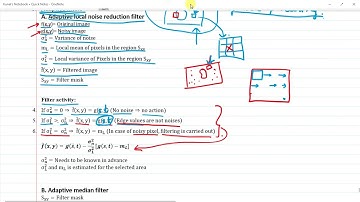 Kunal's Notebook • Quick Notes - OneNote
A. Adaptive local noise reduction filter
f(x,y) = Original image
g(x,y) = Noisy image
= Variance of noise
m_L = Local mean of pixels in the region S_xy
σ²_L = Local variance of Pixels in the region S_xy
f̂(x,y) = Filtered image
S_xy = Filter mask
Filter activity:
4. If σ²_η = 0 ⇒ f̂(x, y) = g(s, t) (No noise ⇒ no action)
5. (Edge values are not noises)
6. ⇒ f̂(x, y) = m_L (In case of noisy pixel, filtering is carried out)
f̂(x, y) = g(s, t) − σ²_η/σ²_L [g(s, t) − m_L]
σ²_η = Needs to be known in advance
σ²_L and m_L is estimated for the selected area
B. Adaptive median filter
S_xy = Filter mask